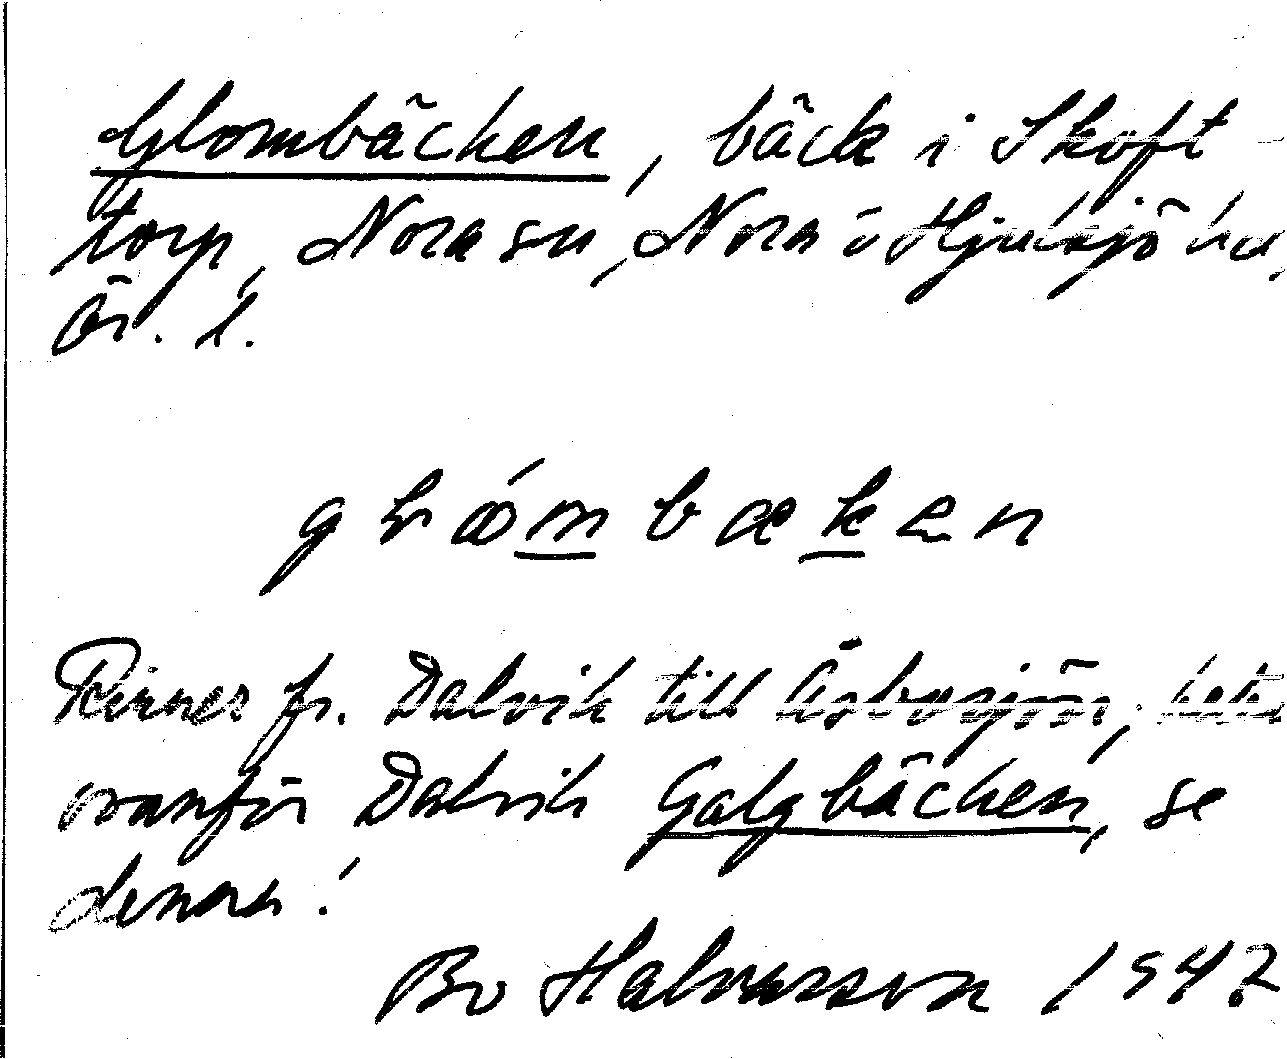 Glombäcken, bäck i Skoft-
torp, Nora sn, Nora o Hjulsjö hd,
Ör. l.
Rinner fr. Dalvik till Åsbosjön, heter
ovanför Dalvik Galgbäcken, se
denna!
Bo Halvarsson 1942